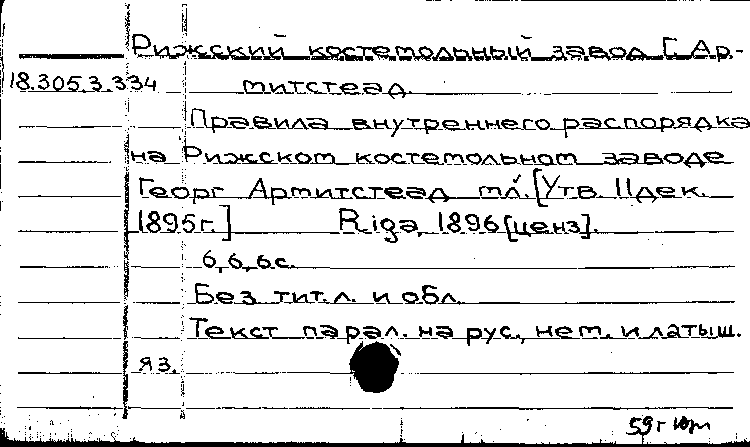 Рижский костемольный завод Г. Ар-
18.305.3.334 митстеад.
Правила внутреннего распорядка
на Рижском костемольном заводе
Георг Армитстеад мл. [Утв. 11 дек.
1895г.] Riga, 1896 [ценз].
6, 6, 6 с.
Без тит. л. и обл.
Текст парал. на рус., нем. и латыш.
яз.
59 г